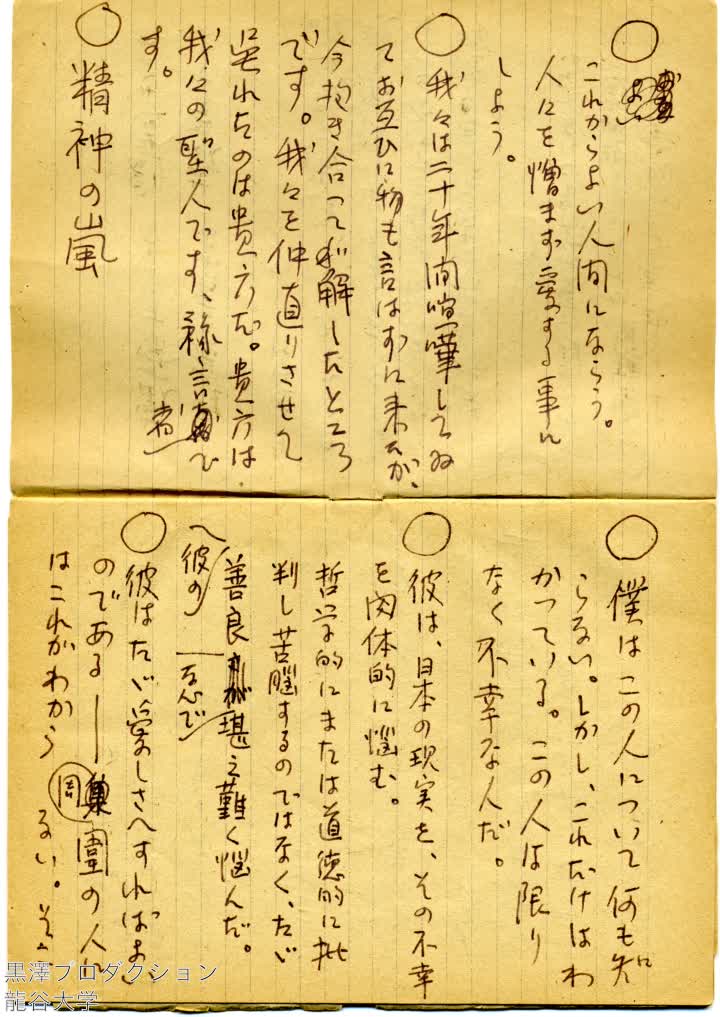 ○
これからよい人間にならう。
人々を憎まず愛する事に
しよう。
○
我々は二十年間喧嘩してゐ
てお互ひに物も言はずに来たが、
今抱き合つて和解したところ
です。我々を仲直りさせて
呉れたのは貴方だ。貴方は
我々の聖人です、予言者で
す。
○
精神の嵐
○
僕はこの人について何も知
らない。しかし、これだけはわ
かつている。この人は限り
なく不幸な人だ。
○
彼は、日本の現実を、その不幸
を肉体的に悩む。
哲学的にまたは道徳的に批
判し苦悩するのではなく、たゞ
彼の善良な心で堪え難く悩んだ。
○
彼はたゞ愛しさへすればよい
のである——周囲の人に
はこれがわからない。
黒澤プロダクション
龍谷大学